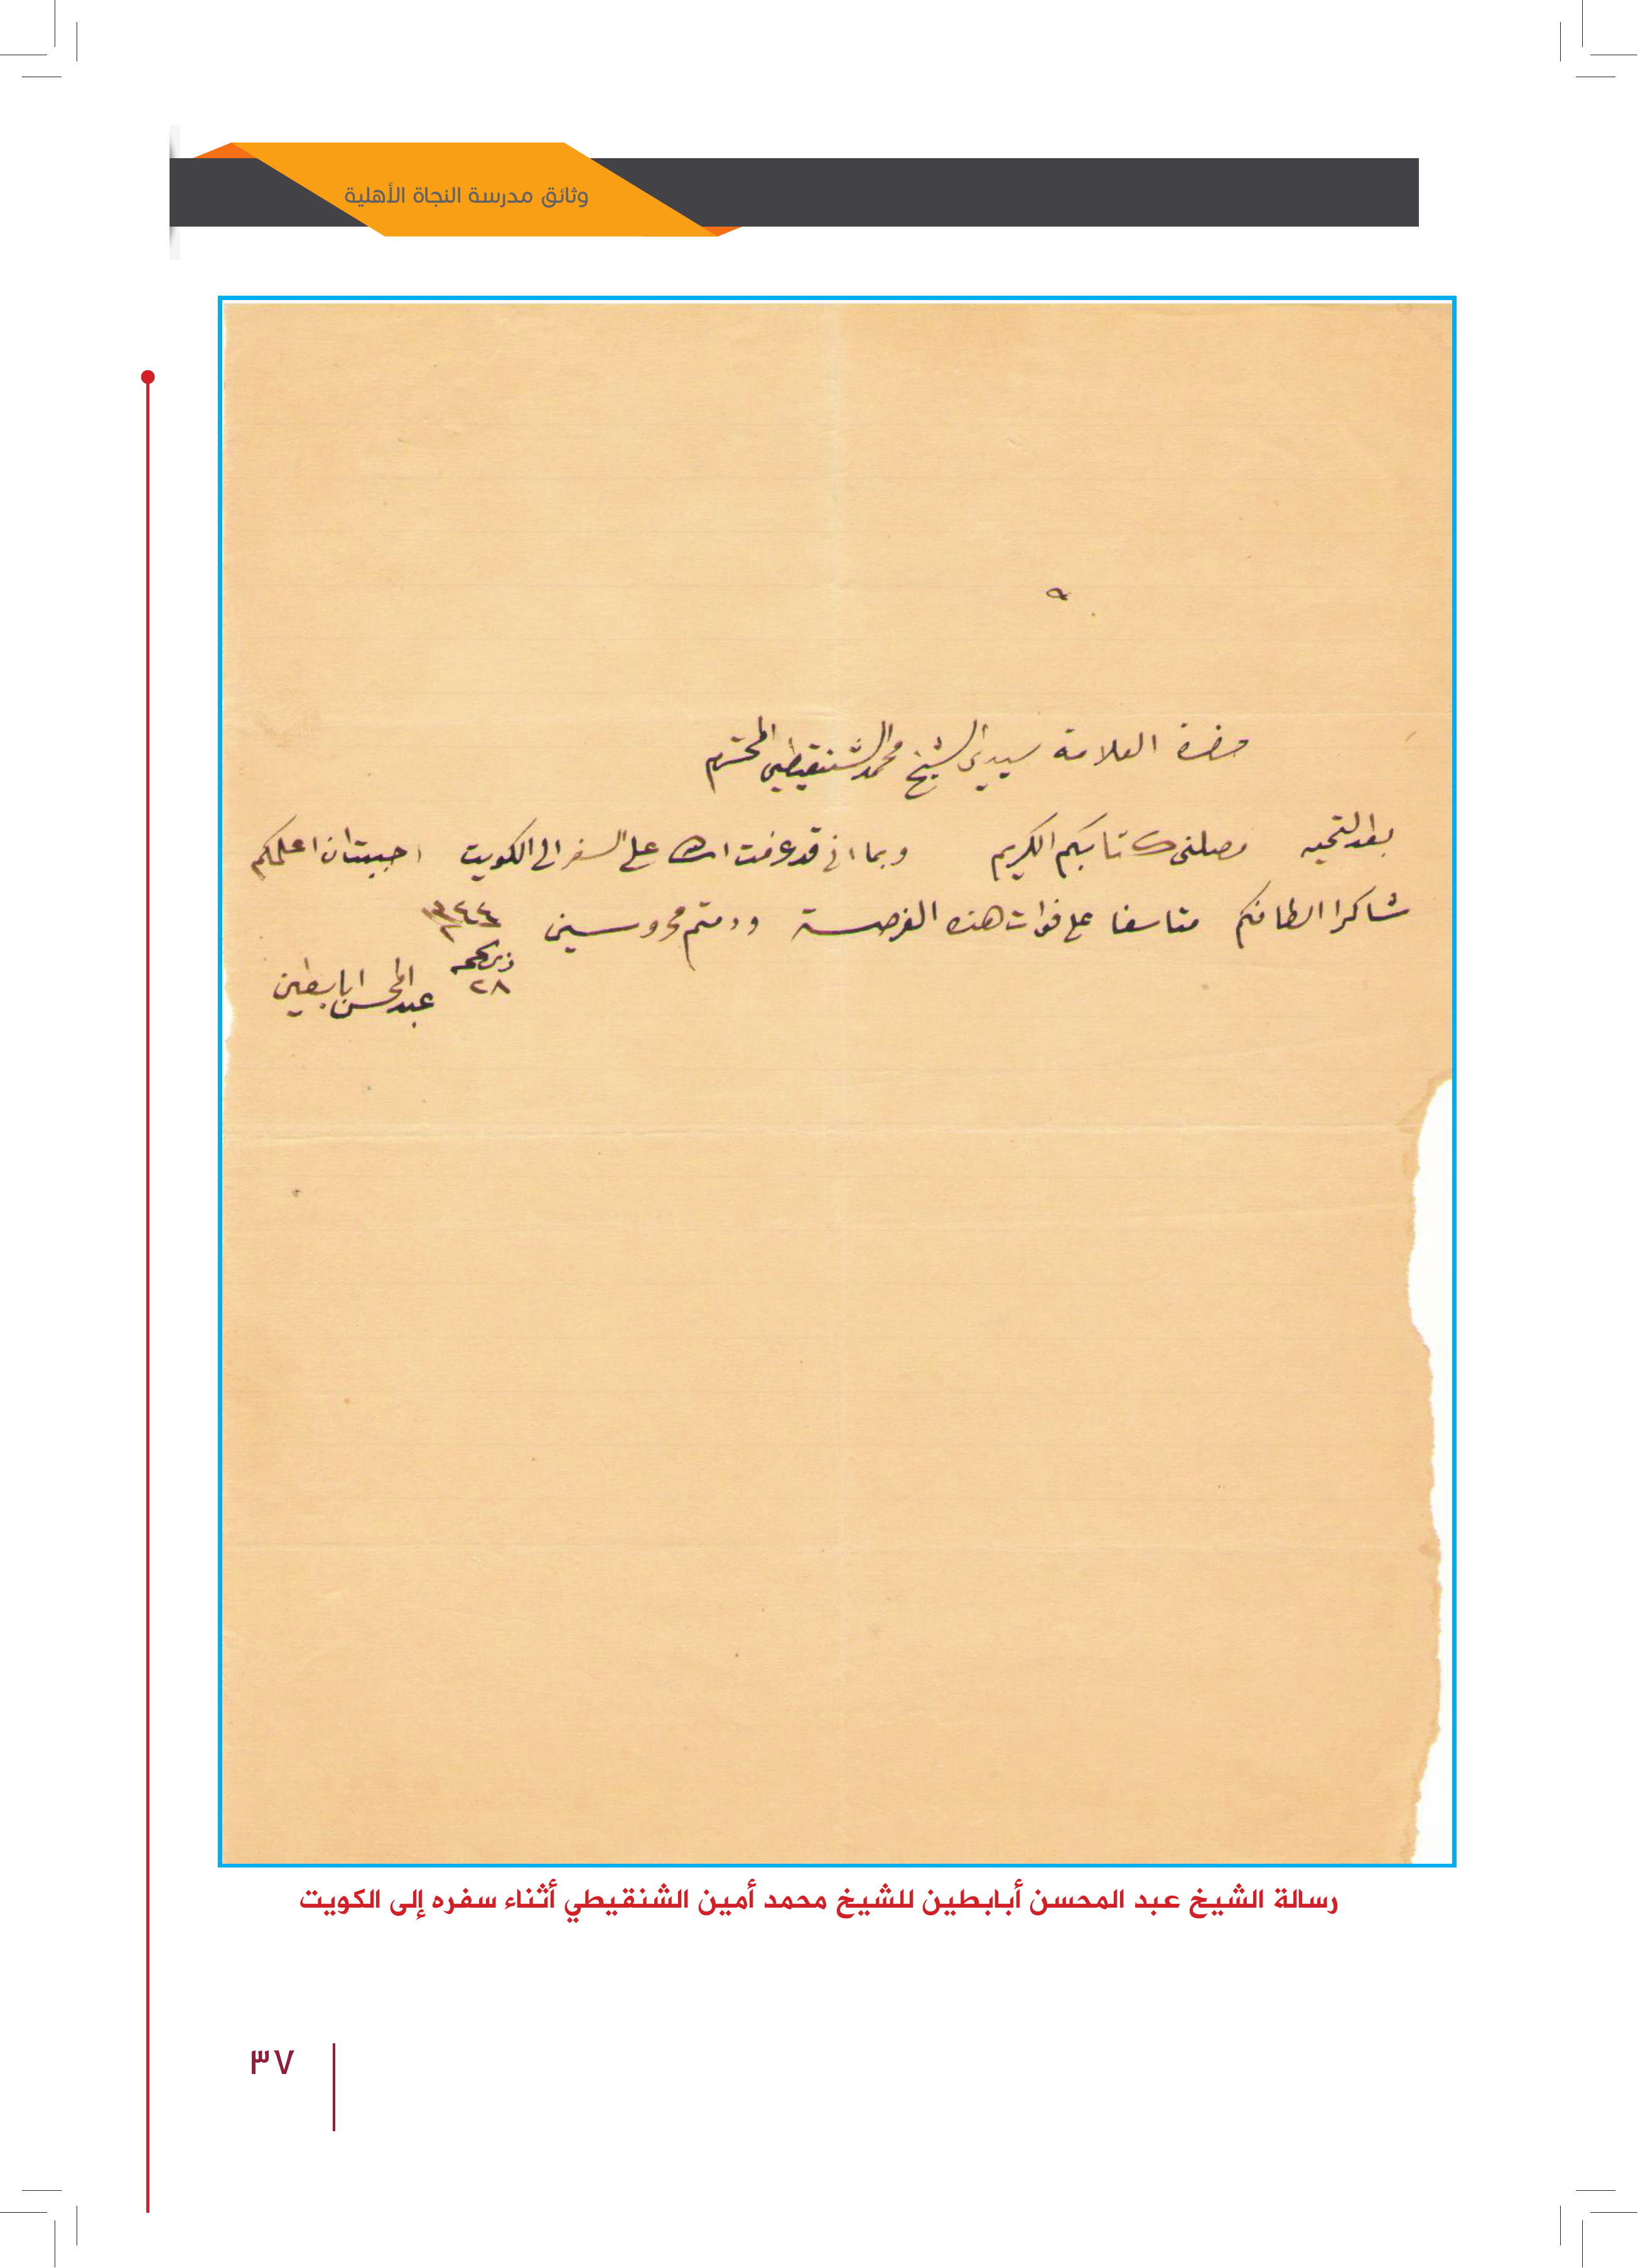 وثائق مدرسة النجاة الأهلية
حضرة العلامة سيدي الشيخ محمد الشنقيطي المحترم
بعد التحيه وصلني كتابكم الكريم وبما اني قد عزمت على السفر الى الكويت احببت ان اعلمكم
شاكرا الطافكم متاسفا على فوات هذه الفرصة ودمتم محروسين ١٣٤٤
ذي الحجه
٢٨
عبد المحسن ابابطين
رسالة الشيخ عبد المحسن أبابطين للشيخ محمد أمين الشنقيطي أثناء سفره إلى الكويت
٣٧